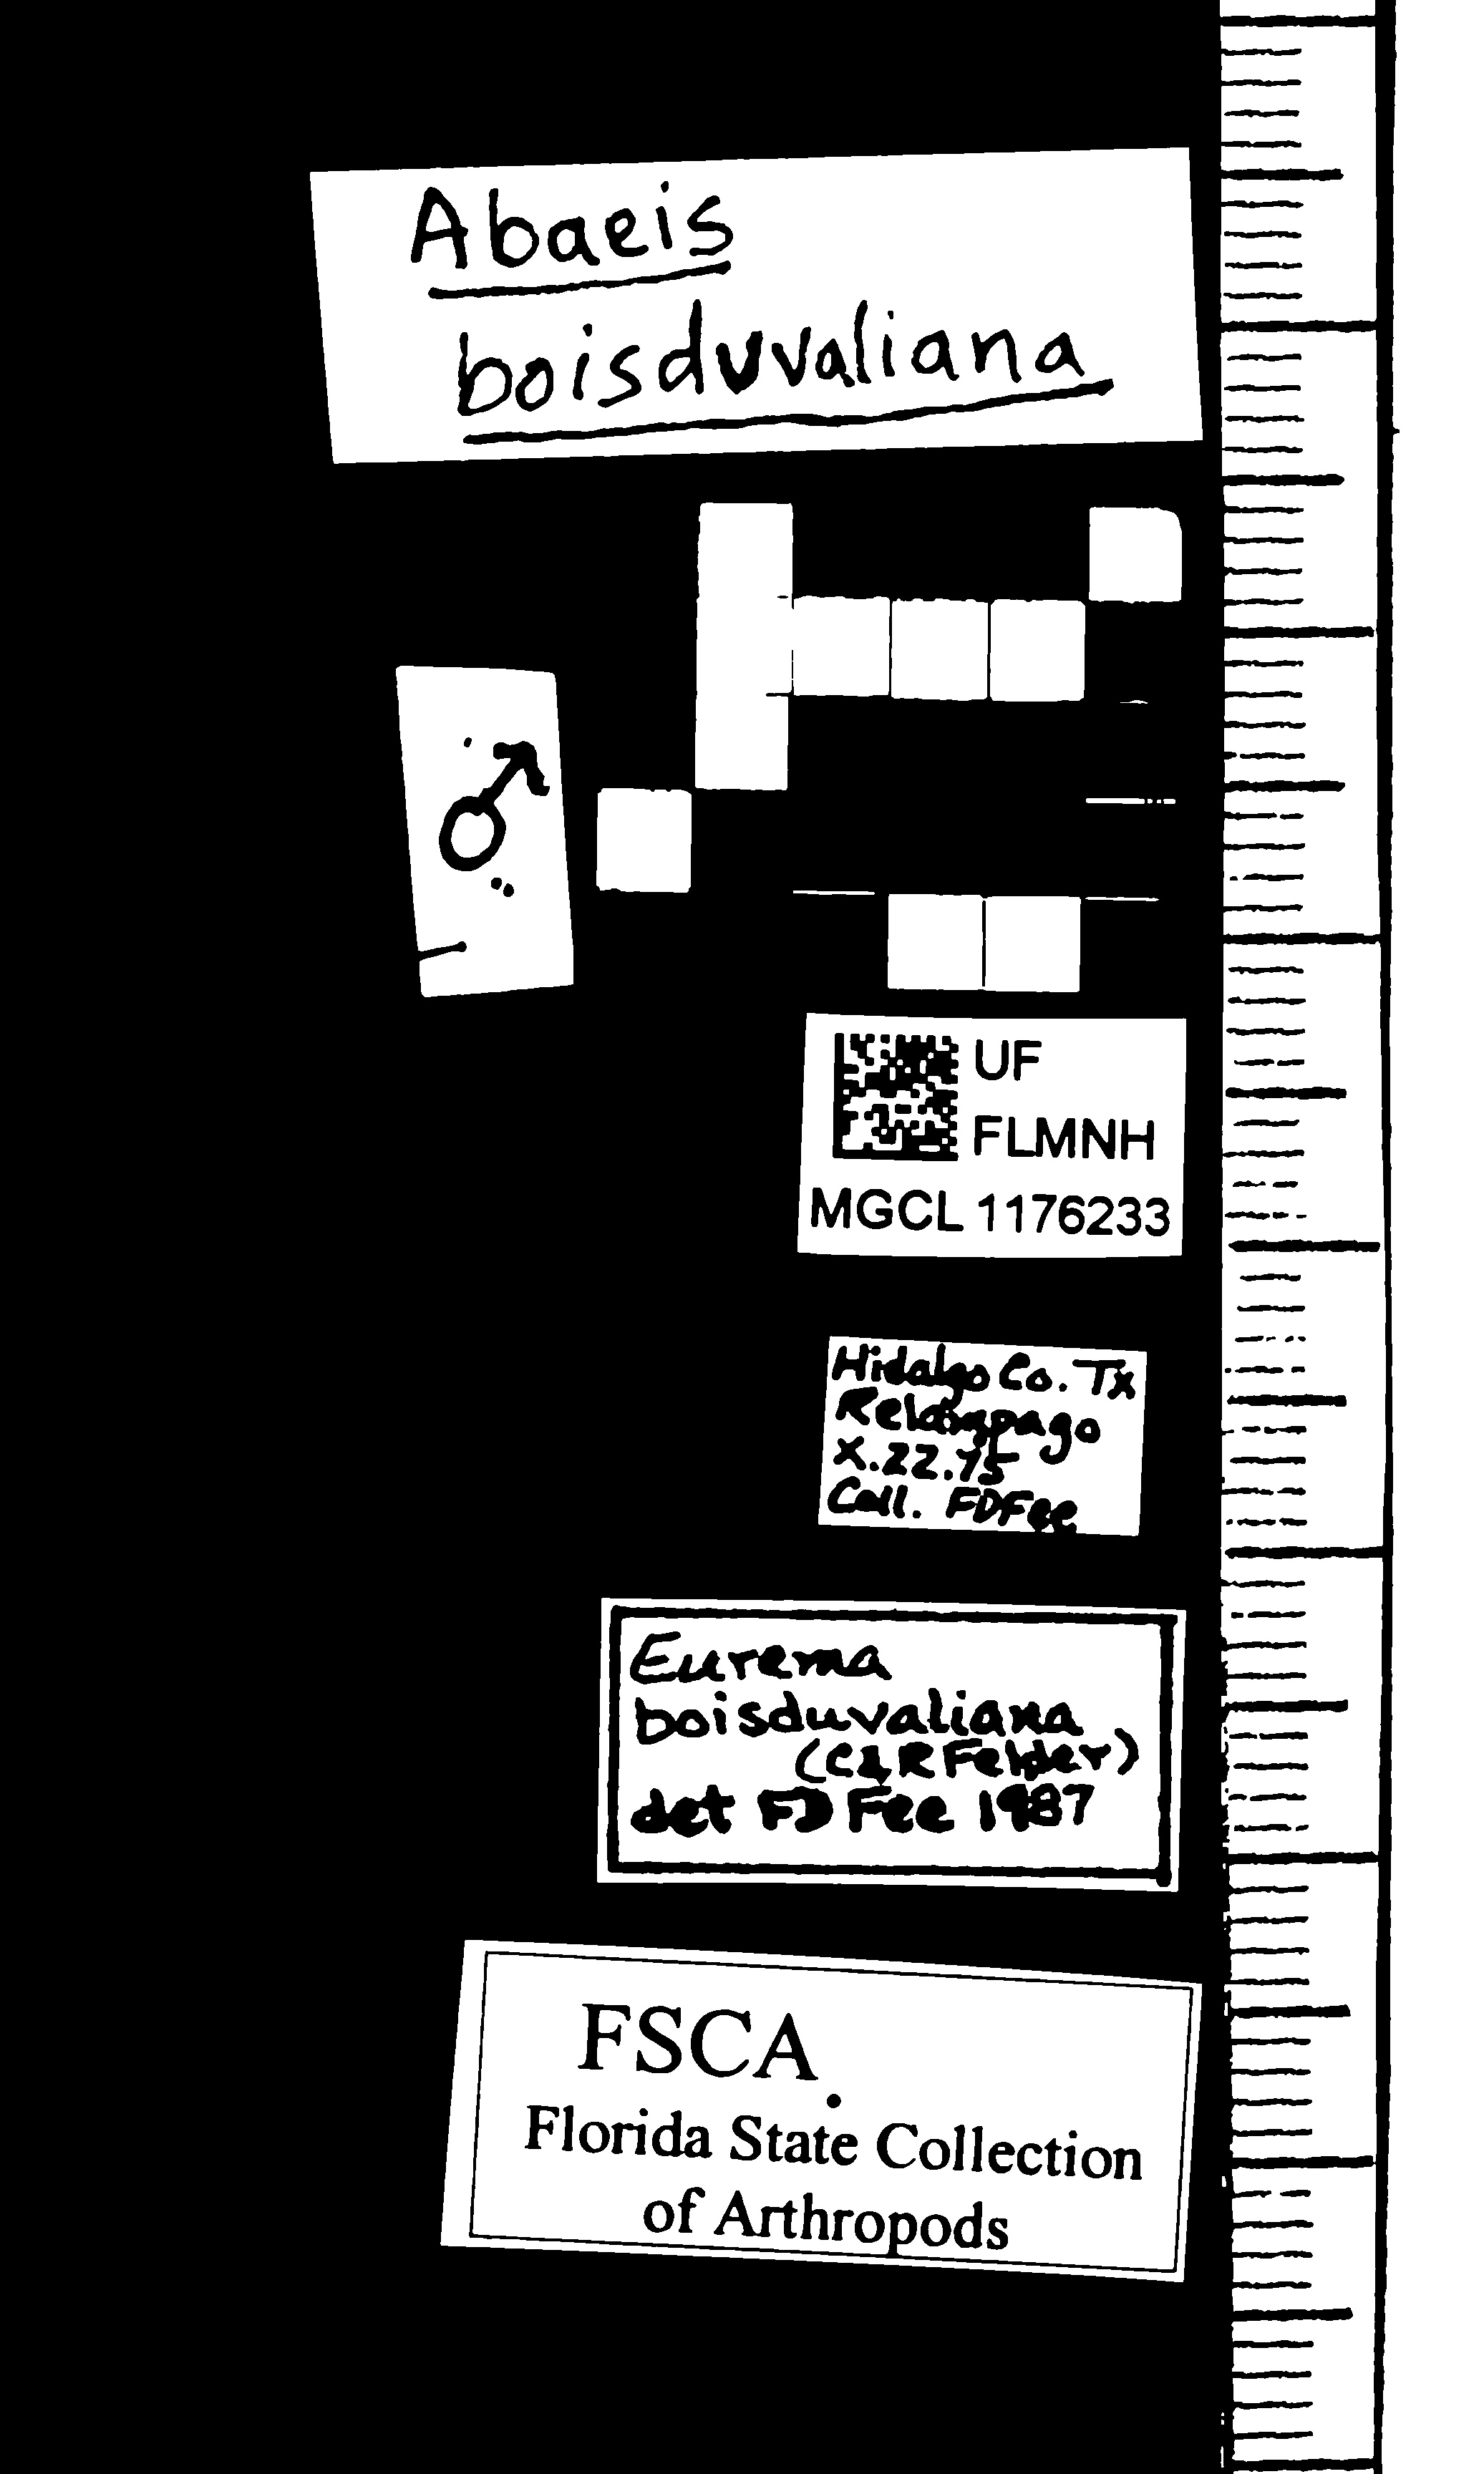 Abaeis
boisduvaliana
♂
UF
FLMNH
MGCL 1176233
Hidalgo Co. Tx
Relampago
X.22.75
Coll. FDFee
Eurema
boisduvaliana
(C&R Felder)
det FD Fee 1987
FSCA
Florida State Collection
of Arthropods